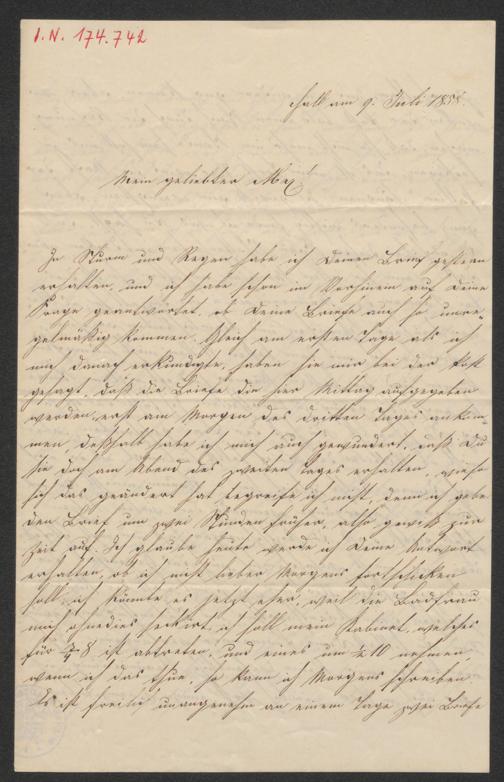 I.N. 174.742
Hall am 9. Juli 1855.
Mein geliebter Max!
In Sturm und Regen habe ich Deinen Brief gestern
erhalten, und ich habe schon im Vorhinein auf Deine
Frage geantwortet, ob Deine Briefe auch so unre-
gelmäßig kommen. Gleich am ersten Tage als ich
mich danach erkundigte, haben sie mir bei der Post
gesagt, daß die Briefe die hier Mittag aufgegeben
werden, erst am Morgen des dritten Tages ankom-
men, deßhalb habe ich mich auch gewundert, daß Du
sie doch am Abend des zweiten Tages erhalten, wieso
sich das geändert hat begreife ich nicht, denn ich gebe
den Brief um zwei Stunden früher, also gewiß zur
Zeit auf. Ich glaube heute werde ich Deine Antwort
erhalten, ob ich nicht lieber Morgens fortschicken
soll, ich könnte es jetzt eher, weil die Badfrau
mich ohnedies sekirt ich soll mein Kabinet, welches
für 8 ist abtreten, und eines um 10 nehmen,
wenn ich das thue, so kann ich Morgens schreiben.
Es ist freilich unangenehm an einem Tage zwei Briefe